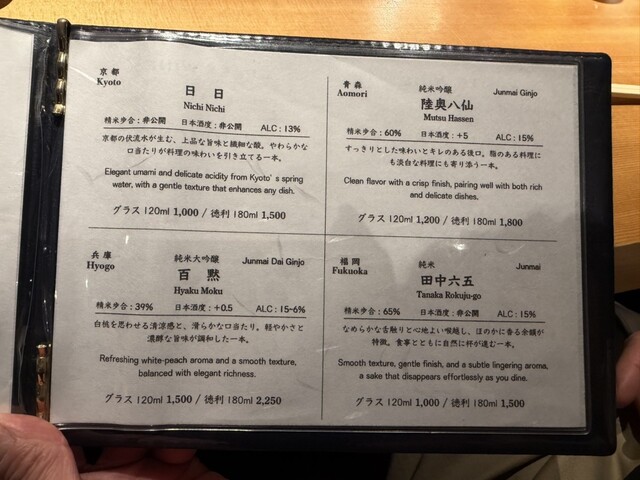 京都
Kyoto
日日
Nichi Nichi
精米歩合：非公開 日本酒度：非公開 ALC：13%
京都の伏流水が生む、上品な旨味と繊細な酸。やわらかな
口当たりが料理の味わいを引き立てる一本。
Elegant umami and delicate acidity from Kyoto's spring
water, with a gentle texture that enhances any dish.
グラス 120ml 1,000 / 徳利 180ml 1,500
青森
Aomori
純米吟醸
Junmai Ginjo
陸奥八仙
Mutsu Hassen
精米歩合：60% 日本酒度：+5 ALC：15%
すっきりとした味わいとキレのある後口。脂のある料理にも
淡白な料理にも寄り添う一本。
Clean flavor with a crisp finish, pairing well with both rich
and delicate dishes.
グラス 120ml 1,200 / 徳利 180ml 1,800
兵庫
Hyogo
純米大吟醸
Junmai Dai Ginjo
百黙
Hyaku Moku
精米歩合：39% 日本酒度：+0.5 ALC：15-6%
白桃を思わせる清涼感と、滑らかな口当たり。軽やかさと
濃醇な旨味が調和した一本。
Refreshing white-peach aroma and a smooth texture,
balanced with elegant richness.
グラス 120ml 1,500 / 徳利 180ml 2,250
福岡
Fukuoka
純米
Junmai
田中六五
Tanaka Rokuju-go
精米歩合：65% 日本酒度：非公開 ALC：15%
なめらかな舌触りと心地よい喉越し、ほのかに香る余韻が
特徴。食事とともに自然に杯が進む一本。
Smooth texture, gentle finish, and a subtle lingering aroma,
a sake that disappears effortlessly as you dine.
グラス 120ml 1,000 / 徳利 180ml 1,500